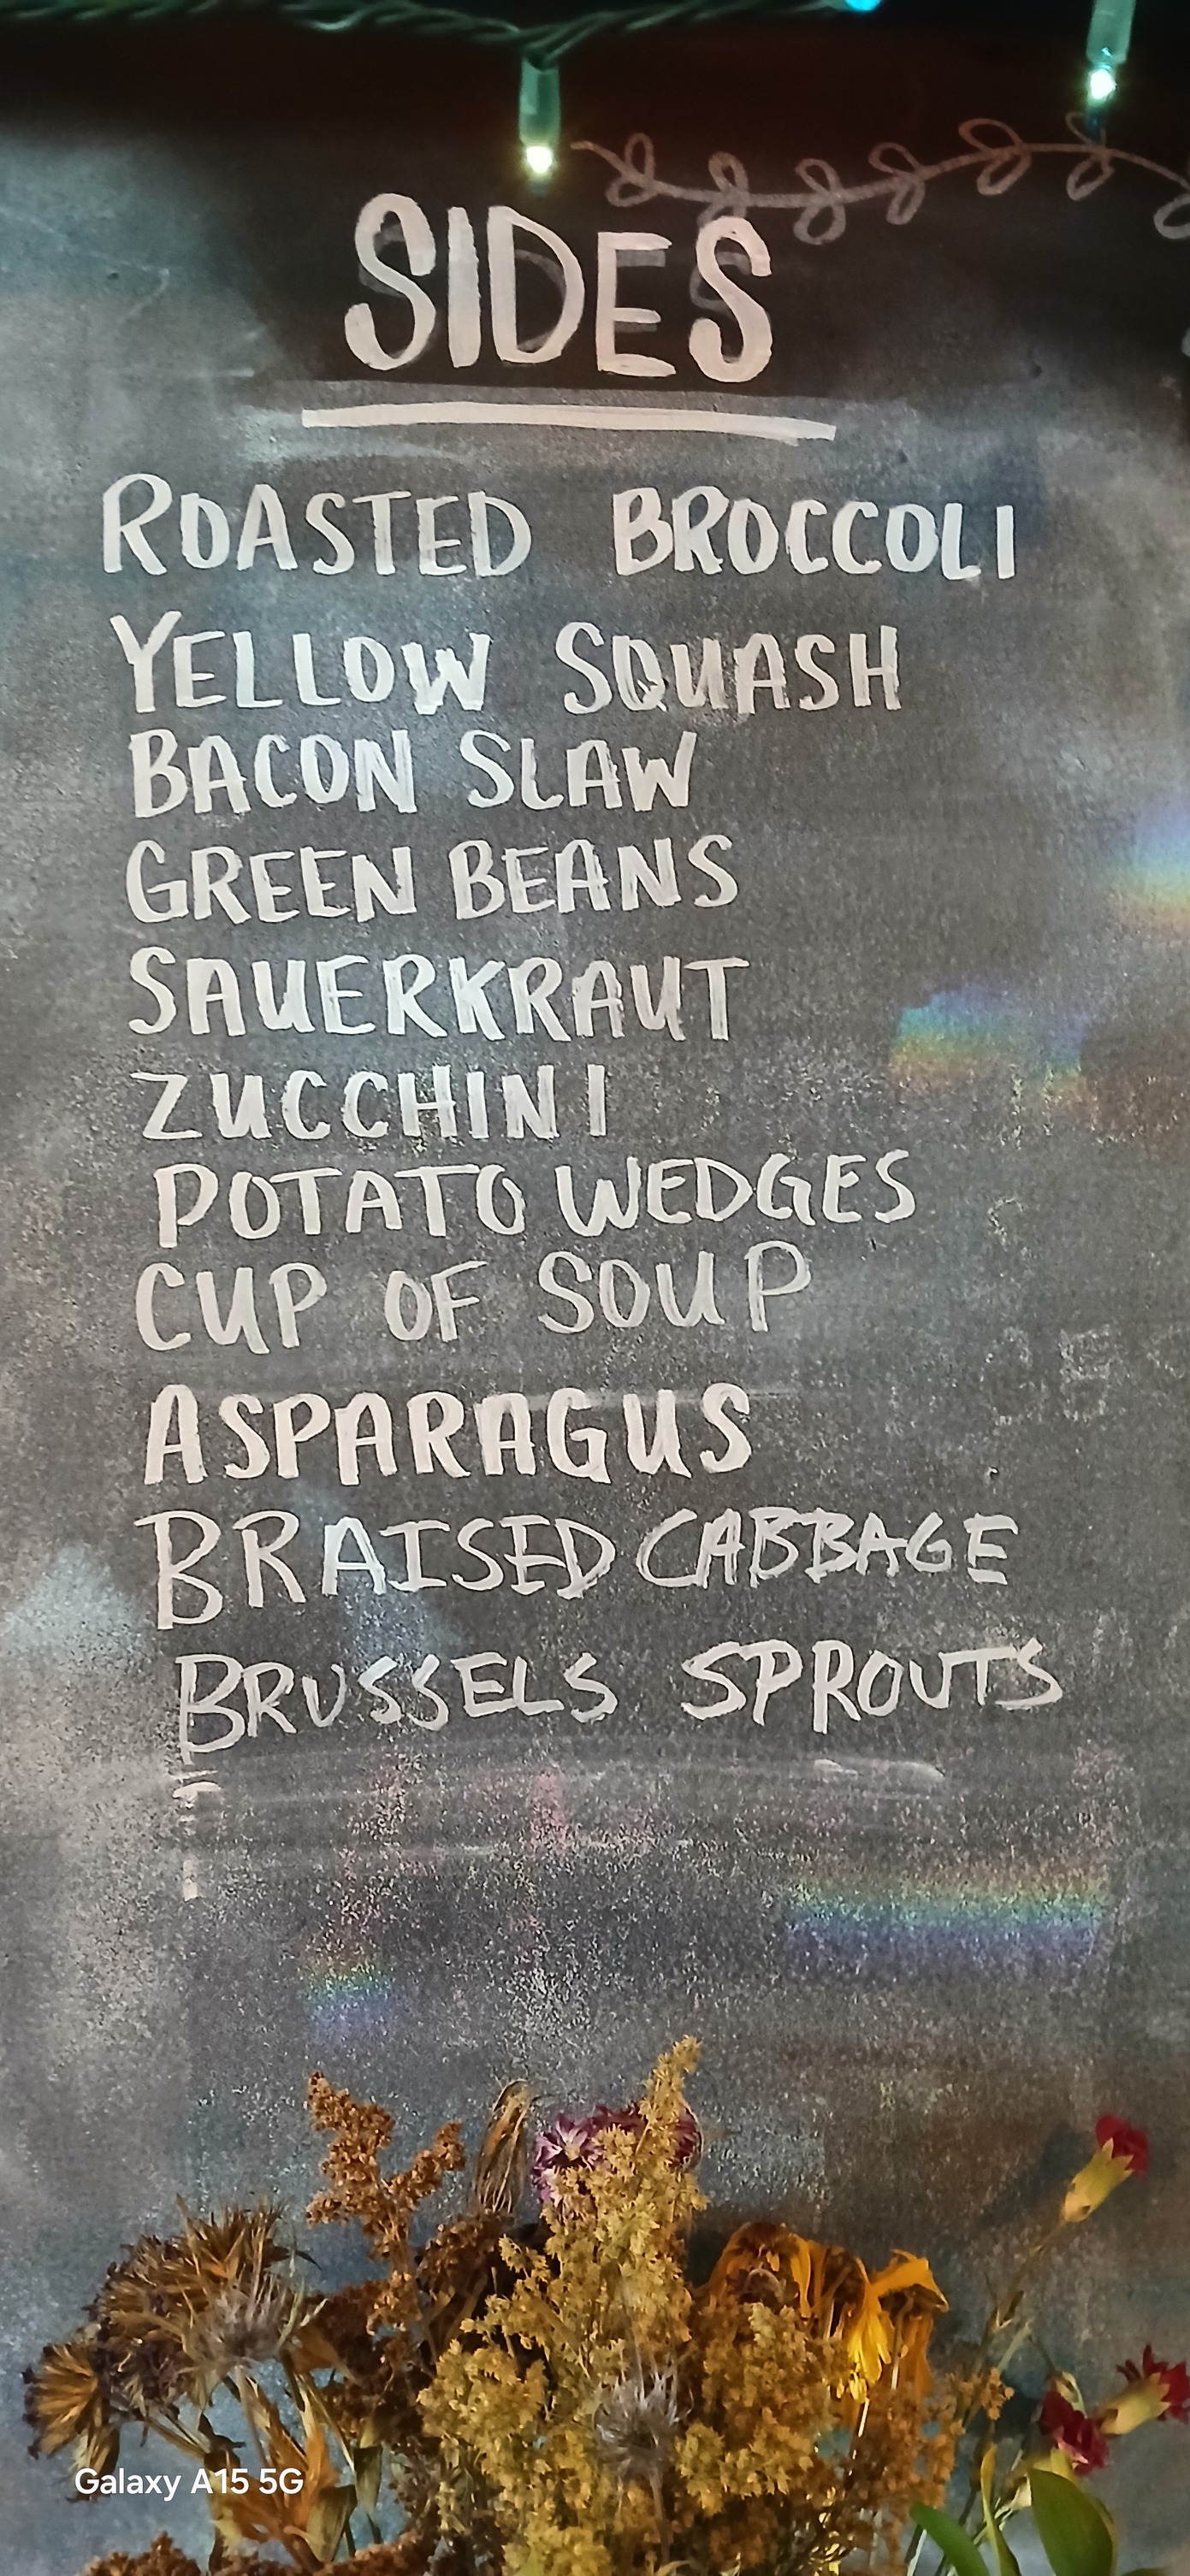 SIDES
ROASTED BROCCOLI
YELLOW SQUASH
BACON SLAW
GREEN BEANS
SAUERKRAUT
ZUCCHINI
POTATO WEDGES
CUP OF SOUP
ASPARAGUS
BRAISED CABBAGE
BRUSSELS SPROUTS
Galaxy A15 5G